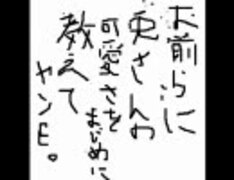 お前らに
兎さんの
可愛さを
まじめに
教えて
ヤンE。